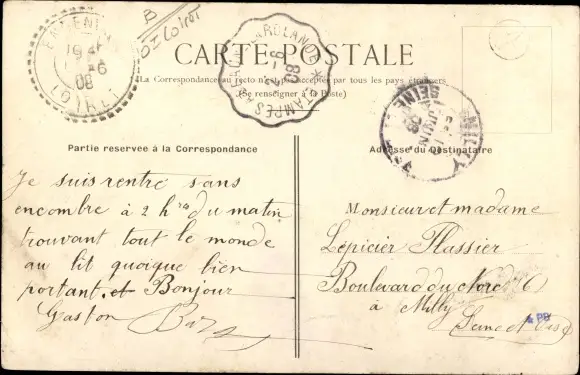 B
Loiret
CARTE POSTALE
La Correspondance au recto n'est pas acceptée par tous les pays étrangers
(Se renseigner à la Poste)
19
6
08
LOIRET
MILLY
SEINE
JUIN
08
Partie reservée à la Correspondance
Adresse du Destinataire
Je suis rentré sans
encombre à 2 hres du matin
trouvant tout le monde
au lit quoique bien
portant. et Bonjour
Gaston
Monsieur et madame
Lépicier Flassier
Boulevard du Nord
à Milly
Seine et Oise
PB